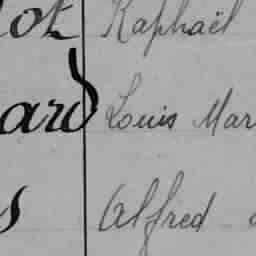 lot Raphaël
ard Louis Mar
s Alfred